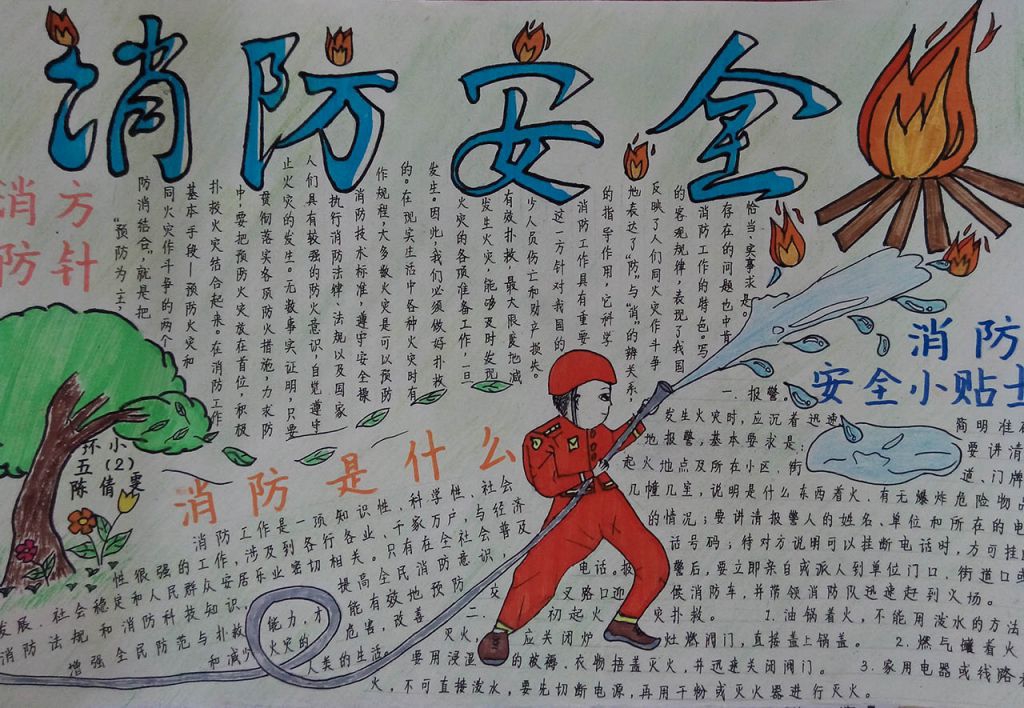 消防安全
消方
防针
“预防为主,
防消结合”,就是把
同火灾作斗争的两个
基本手段—预防火灾和
扑救火灾结合起来。在消防工作
中,要把预防火灾放在首位,积极
贯彻落实各项防火措施,力求防
止火灾的发生。无数事实证明,只要
人们具有较强的防火意识,自觉遵守
执行消防法律、法规以及国家
消防技术标准,遵守安全操
作规程,大多数火灾是可以预防
的。在现实生活中各种火灾时有
发生。因此,我们必须做好扑救
火灾的各项准备工作,一旦
发生火灾,能够及时发现、
有效扑救,最大限度地减
少人员伤亡和财产损失。
这一方针对我国的
消防工作具有重要
的指导作用,它科学
地表达了“防”与“消”的辨关系,
反映了人们同火灾作斗争
的客观规律,表现了我国
消防工作的特色。写
存在的问题也中肯
恰当,实事求是。
孙小
五(2)
陈倩雯
消防是什么
消防工作是一项知识性、科学性、社会
性很强的工作,涉及到各行各业、千家万户,与经济
发展、社会稳定和人民群众安居乐业密切相关。只有在全社会普及
消防法规和消防科技知识,提高全民消防意识,
增强全民防范与扑救能力,才能有效地预防
和减少火灾的危害,改善
人类的生活。
消防
安全小贴士
一、报警。
发生火灾时,应沉着迅速 简明准
地报警,基本要求是: 要讲清
起火地点及所在小区、街道、门牌
几幢几室,说明是什么东西着火、有无爆炸危险物品
的情况;要讲清报警人的姓名、单位和所在的电
话号码;待对方说明可以挂断电话时,方可挂
电话。报警后,要立即亲自或派人到单位门口、街道口或
交叉路口迎候消防车,并带领消防队迅速赶到火场。
二、初起火灾扑救。 1.油锅着火,不能用泼水的方法
灭火,应关闭炉灶燃阀门,直接盖上锅盖。 2.燃气罐着火
要用浸湿的被褥、衣物捂盖灭火,并迅速关闭阀门。 3.家用电器或线路
火,不可直接泼水,要先切断电源,再用干粉或灭火器进行灭火。